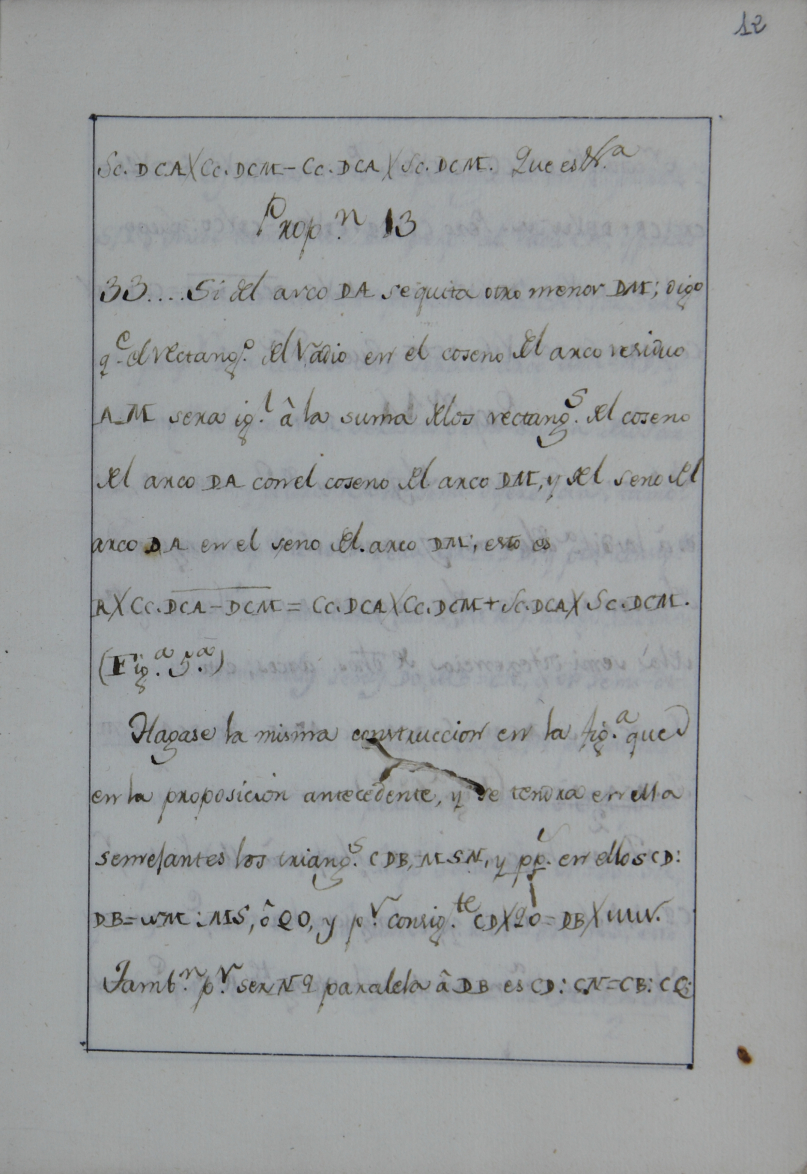 12
Sc. DCA X Cc. DCM - Cc. DCA X Sc. DCM. Que es &.ª
Prop.ⁿ 13
33.... Si del arco DA se quita otro menor DM; digo
q.ᵉ el rectang.º del radio en el coseno del arco residuo
AM sera ig.ˡ â la suma de los rectang.ˢ del coseno
del arco DA con el coseno del arco DM, y del seno del
arco DA en el seno del arco DM; esto es
R X Cc. DCA - DCM = Cc. DCA X Cc. DCM + Sc. DCA X Sc. DCM.
(Fig.ª 5.ª)
Hagase la misma construccion en la fig.ª que
en la proposicion antecedente, y se tendra en ella
semejantes los triang.ˢ CDB, MSN, y en ellos CD:
DB = NM : MS, ô QO, y p.ʳ consig.ᵗᵉ CD X QO = DB X NM.
Tamb.ⁿ p.ʳ ser NQ paralela â DB es CD: CN = CB: CQ;